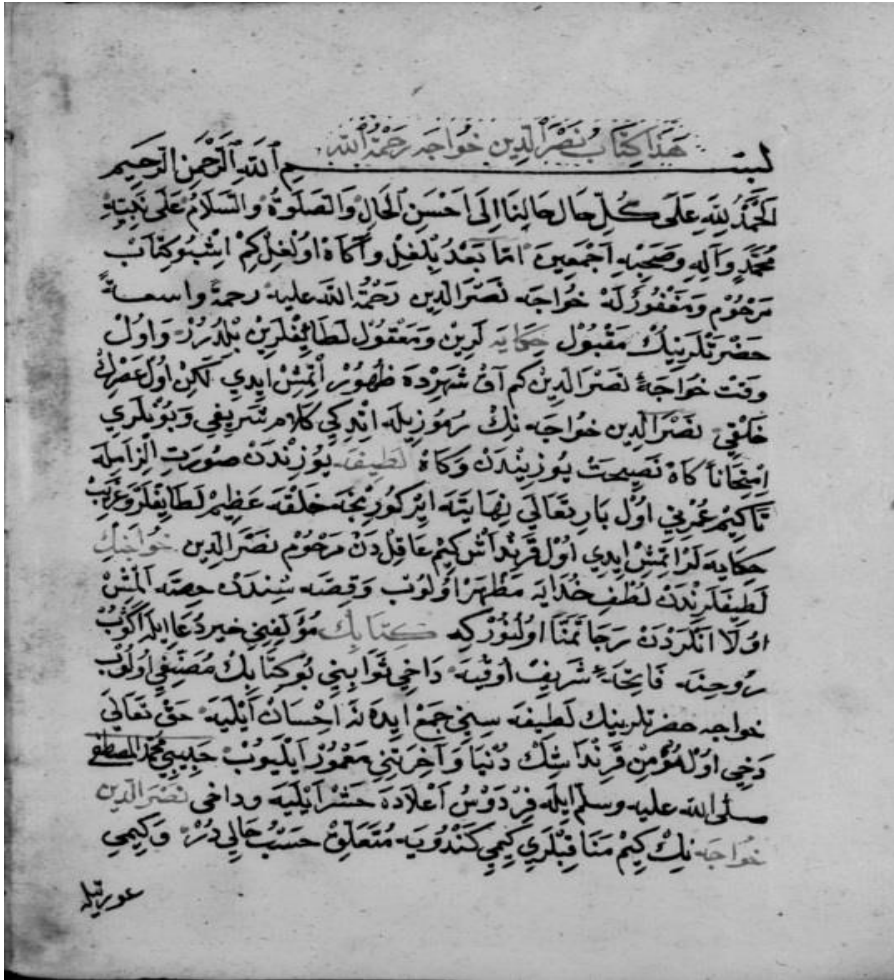 هَذَا كِتَابُ نَصْرَالدِّين خُوَاجَه رَحْمَةُ اللّٰه
بسم اللّٰه الرَّحْمٰنِ الرَّحِيم
اَلْحَمْدُ لِلّٰهِ عَلَى كُلِّ حَال حَالِنَا اِلَى اَحْسَنِ الْحَالِ وَالصَّلٰوةُ وَالسَّلَامُ عَلَى نَبِيِّهِ
مُحَمَّدٍ وَآلِهِ وَصَحْبِهِ اَجْمَعِينَ اَمَّا بَعْدُ بِلْغِلْ وَآكَاهْ اُولْغِلْ كِمْ اِشْبُو كِتَابْ
مَرْحُوْم وَمَغْفُوْرُ لَهْ خُوَاجَه نَصْرَالدِين رَحْمَةُ اللّٰه عليه رحمةً واسعةً
حَضْرَتْلَرِينِكْ مَقْبُولْ حِكَايَه لَرِين وَمَعْقُولْ لَطَائِفْلَرِينْ بِلْدُرُرْ وَاُولْ
وَقْتْ خُوَاجَهٔ نَصْرَالدِين كم آقْ شَهِرْدَه ظُهُورْ اِتْمِشْ اِيدِي لَكِنْ اُولْ عَصْرِكْ
خَلْقِي نَصْرَالدِين خُوَاجَه نِكْ رُمُوزِيلَه اِتْدِكِي كَلَام شَرِيفِي وَبُونْلَرِي
اِمْتِحَانًا كَاهْ نَصِيحَتْ يُوزِينْدَنْ وَكَاهْ لَطِيفَه يُوزِنْدَنْ صُورَتِ اِلْزَامِلَه
تَاكِيمْ عُمْرِنِي اُولْ بَارِ تَعَالَى نِهَايَتَه اِيرْكُورِنْجَه خَلْقَه عَظِيمْ لَطَائِفْلَرْ وَغَرِيبْ
حكايه لَرْ اِتْمِشْ اِيدِي اُولْ قَرِنْدَاشْ كِيمْ عَاقِلْ دَنْ مَرْحُوْم نَصْرَالدِين خُوَاجَنِكْ
لَطِيفَلَرِنْدَنْ لُطْفِ خُدَايَه مَظْهَرْ اُولُوبْ وَقِصَّه سِنْدَنْ حِصَّه اَلْمِشْ
اُولَا اَنْلَرْدَنْ رَجَا تَمَنَّا اُولُنُورْكِه كِتَابِكْ مُؤَلِّفِينِي خيردُعَا ايله آكُوبْ
رُوحِنَه فَاتِحَهٔ شَرِيفْ اُوقِيَه دَاخِي ثَوَابِينِي بُو كِتَابِكْ مُصَنِّفِي اُولُوبْ
خواجه حضرتلرينِك لَطِيفَه سِينِي جَمْعْ اِيدَه نَه اِحْسَانْ اَيْلِيَه حَقْ تَعَالَى
دَخِي اُولْ مُؤْمِنْ قَرِنْدَاشِكْ دُنْيَا وَآخِرَتِنِي مَعْمُورْ اَيْلَيُوبْ حَبِيبِي مُحَمَّد المصطفى
صلى اللّٰه عليه وسلم اِيلَه فِرْدَوْسِ اَعْلَادَه حَشْرْ اَيْلَيَه وداخى نَصْرَالدِين
خُوَاجَه نِكْ كِيمْ مَنَاقِبْلَرِي كِيمِي كَنْدُويَه مُتَعَلِّقْ حَسْبُ حَالِي دُرْ وَكِيمِي
عورتيله